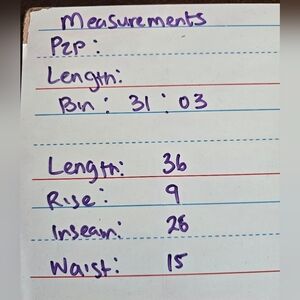 Measurements
P2P:
Length:
Bin: 31:03
Length: 36
Rise: 9
Inseam: 28
Waist: 15